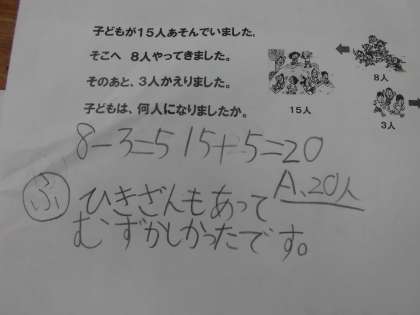 子どもが15人あそんでいました。
そこへ 8人やってきました。
そのあと、3人かえりました。
子どもは、何人になりましたか。
15人
8人
3人
8-3=5 15+5=20
A、20人
ふ ひきざんもあって
むずかしかったです。